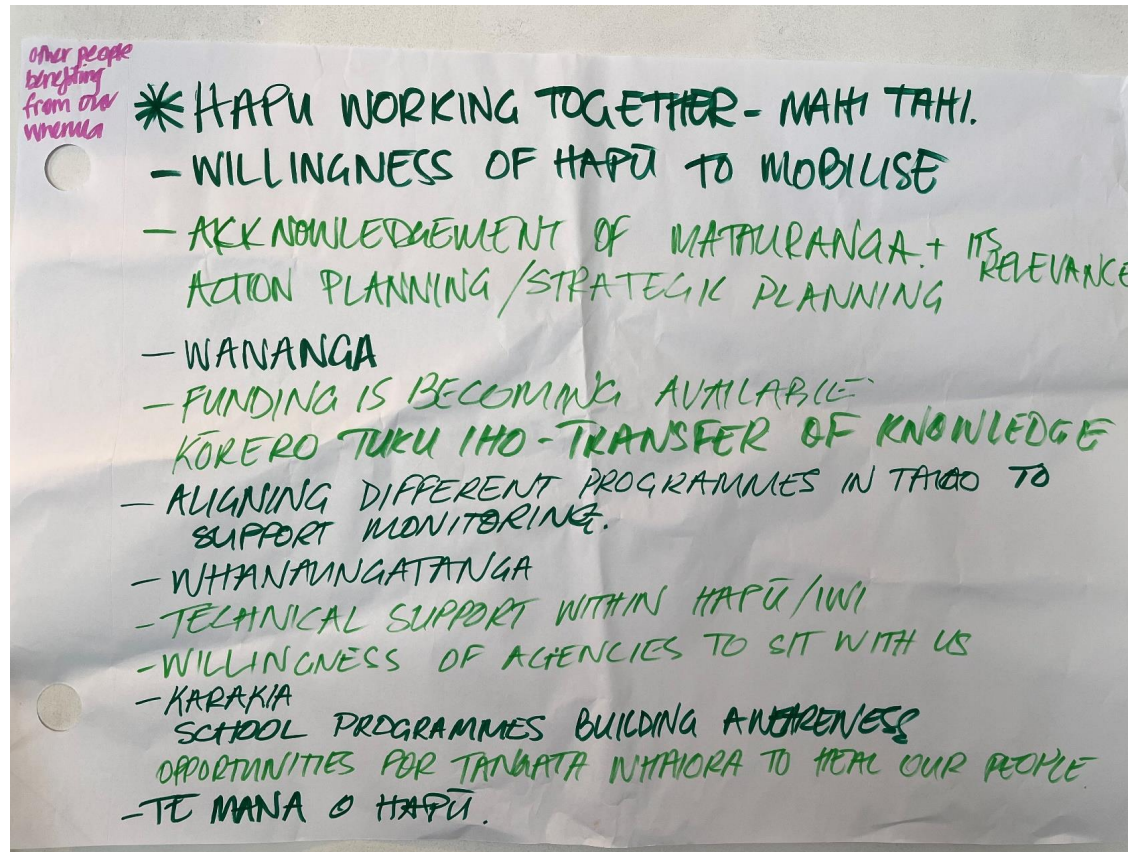 other people
benefiting
from our
whenua
* HAPU WORKING TOGETHER - MAHI TAHI.
- WILLINGNESS OF HAPŪ TO MOBILISE
- ACKNOWLEDGEMENT OF MATAURANGA. + ITS RELEVANCE
ACTION PLANNING / STRATEGIC PLANNING
- WANANGA
- FUNDING IS BECOMING AVAILABLE
KŌRERO TUKU IHO - TRANSFER OF KNOWLEDGE
- ALIGNING DIFFERENT PROGRAMMES IN TAIAO TO
SUPPORT MONITORING.
- WHANAUNGATANGA
- TECHNICAL SUPPORT WITHIN HAPŪ/IWI
- WILLINGNESS OF AGENCIES TO SIT WITH US
- KARAKIA
SCHOOL PROGRAMMES BUILDING AWARENESS
OPPORTUNITIES FOR TANGATA WHAIORA TO HEAL OUR PEOPLE
- TE MANA O HAPŪ.